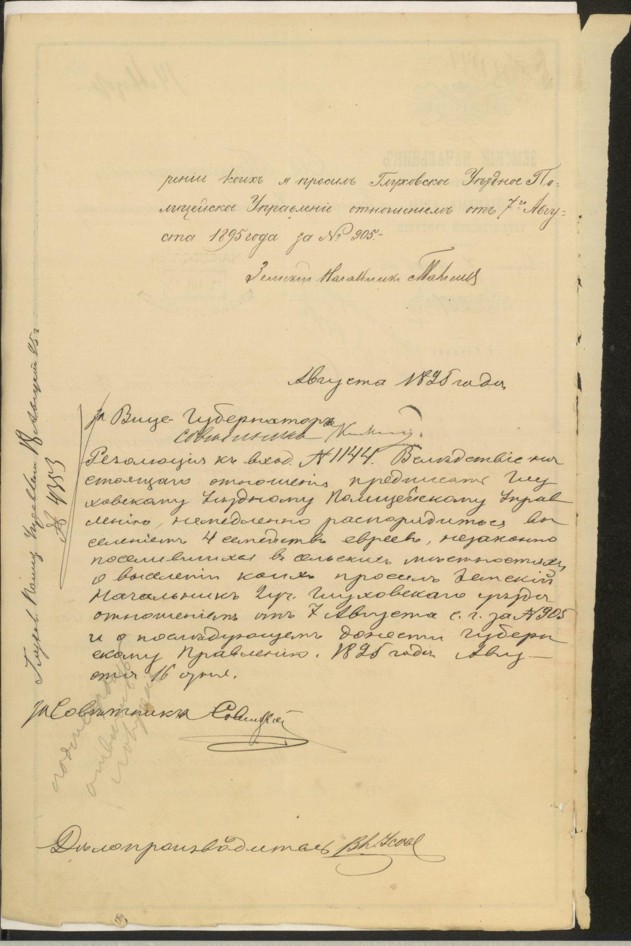 реніи коихъ я просилъ Глуховское Уѣздное По-
лицейское Управленіе отношеніемъ отъ 7го Авгу-
ста 1895 года за № 905.-
Земскій Начальникъ
Августа 1895 года
за Вице-Губернатора
Резолюція къ вход. № 1144. Вслѣдствіе на
стоящаго отношенія предписать Глу
ховскому Уѣздному Полицейскому Управ
ленію, немедленно распорядиться вы
селеніемъ 4 семействъ евреевъ, незаконно
поселившихся въ сельскихъ мѣстностяхъ,
о выселеніи коихъ просилъ Земскій
Начальникъ уч. Глуховскаго уѣзда
отношеніемъ отъ 7 Августа с. г. за № 905
и о послѣдующемъ донести Губерн
скому Правленію. 1895 года Авгу-
ста 16 дня.
за Совѣтника
Дѣлопроизводитель
Глухов. Полиц. 18 Августа 95 г.
№ 4353